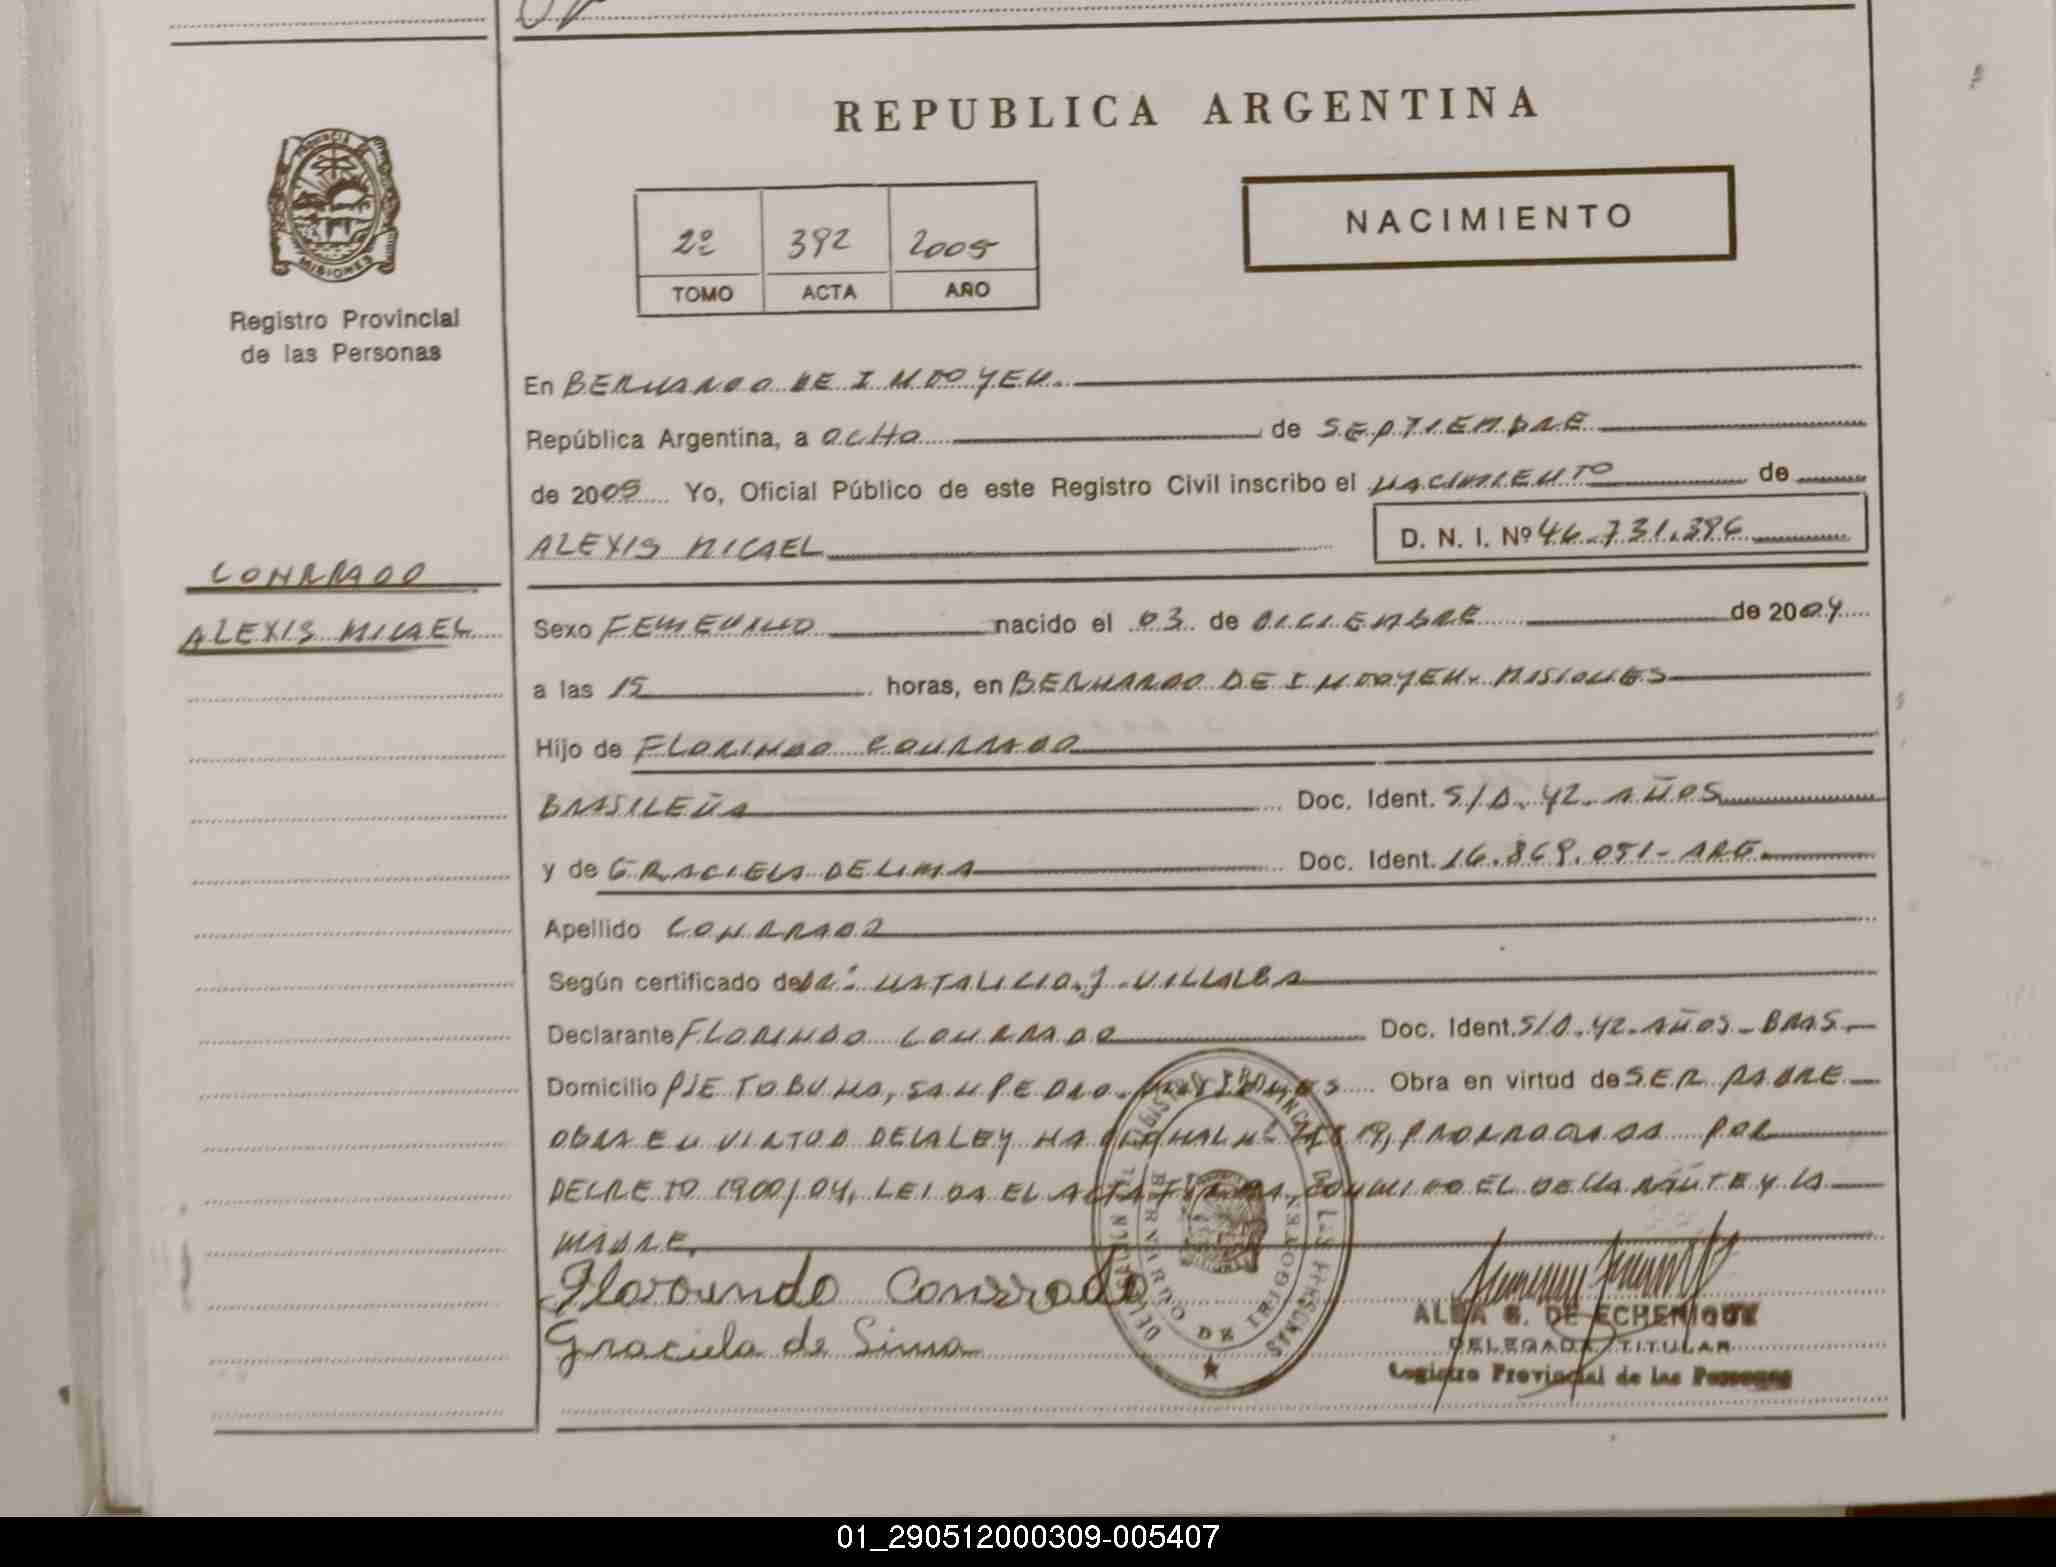 REPUBLICA ARGENTINA
PROVINCIA DE
MISIONES
Registro Provincial
de las Personas
2º 392 2005
TOMO ACTA AÑO
NACIMIENTO
En BERNARDO DE IRIGOYEN.
República Argentina, a OCHO de SEPTIEMBRE
de 2005 Yo, Oficial Público de este Registro Civil inscribo el NACIMIENTO de
ALEXIS MICAEL D. N. I. Nº 46.731.396
CONRRADO
ALEXIS MICAEL
Sexo FEMENINO nacido el 03 de DICIEMBRE de 2004
a las 15 horas, en BERNARDO DE IRIGOYEN. MISIONES
Hijo de FLORINDO CONRRADO
BRASILEÑA Doc. Ident. S/D. 42. AÑOS
y de GRACIELA DE LIMA Doc. Ident. 16.869.051- ARG.
Apellido CONRRADO
Según certificado de DR: NATALICIO. J. VILLALBA
Declarante FLORINDO CONRRADO Doc. Ident. S/D. 42. AÑOS - BRAS.
Domicilio PIETOBUNO, SAN PEDRO. MISIONES Obra en virtud de SER PADRE
OBRA EN VIRTUD DE LA LEY NACIONAL Nº PRORROGADA POR
DECRETO 1900/04, LEIDA EL ACTA FIRMA CONMIGO EL DECLARANTE Y LA
MADRE.
Florindo Conrrado
Graciela de Lima
REGISTRO PROVINCIAL DE LAS PERSONAS
BERNARDO DE IRIGOYEN
ALBA G. DE ECHENIQUE
DELEGADA TITULAR
Registro Provincial de las Personas
01_290512000309-005407